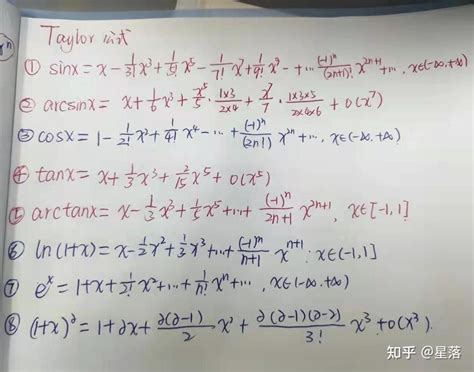 Taylor 公式
① sinx = x - 1/3! x³ + 1/5! x⁵ - 1/7! x⁷ + 1/9! x⁹ - +... (-1)ⁿ/(2n+1)! x²ⁿ⁺¹ +... . x∈(-∞,+∞)
② arcsinx = x + 1/6 x³ + x⁵/5 · 1×3/2×4 + x⁷/7 · 1×3×5/2×4×6 + o(x⁷)
③ cosx = 1 - 1/2! x² + 1/4! x⁴ - ... + (-1)ⁿ/(2n!) x²ⁿ +... , x∈(-∞,+∞)
④ tanx = x + 1/3 x³ + 2/15 x⁵ + o(x⁵)
⑤ arctanx = x - 1/3 x³ + 1/5 x⁵ +...+ (-1)ⁿ/2n+1 x²ⁿ⁺¹, x∈[-1,1]
⑥ ln(1+x) = x - 1/2 x² + 1/3 x³ +...+ (-1)ⁿ/n+1 xⁿ⁺¹, x∈(-1,1]
⑦ eˣ = 1+x+ 1/2! x² +...+ 1/n! xⁿ+... , x∈(-∞,+∞)
⑧ (1+x)^∂ = 1+∂x+ ∂(∂-1)/2 x² + ∂(∂-1)(∂-2)/3! x³ + o(x³).
知乎 @星落